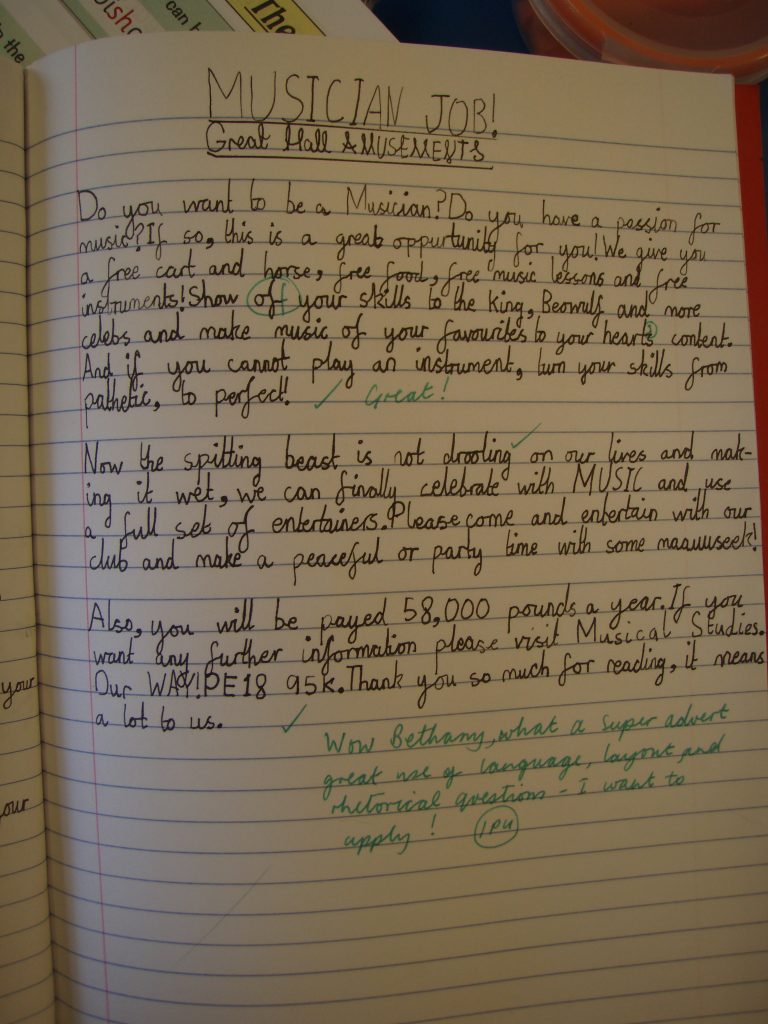 The
can b
ish
n the
MUSICIAN JOB!
Great Hall AMUSEMENTS
Do you want to be a Musician? Do you have a passion for
music? If so, this is a great oppurtunity for you! We give you
a free cart and horse, free food, free music lessons and free
instruments! Show off your skills to the king, Beowulf and more
celebs and make music of your favourites to your hearts content.
And if you cannot play an instrument, turn your skills from
pathetic, to perfect! ✓ Great!
Now the spitting beast is not drooling ✓ on our lives and mak-
ing it wet, we can finally celebrate with MUSIC and use
a full set of entertainers. Please come and entertain with our
club and make a peaceful or party time with some maauuseek!
Also, you will be payed 58,000 pounds a year. If you
want any further information please visit Musical Studies.
your
Our WAY! PE18 95K. Thank you so much for reading, it means
a lot to us. ✓
Wow Bethany, what a super advert
great use of language, layout and
rhetorical questions - I want to
our
apply! 1PU